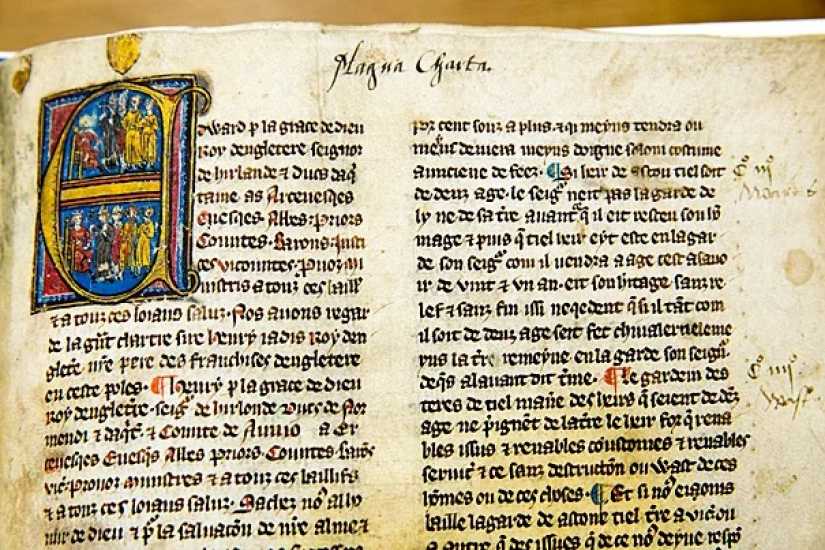 Magna Charta.
Edward p la grace de dieu
Roy dengletere seignor
de hirlande & ducs daq̃
taine as Arcevesqes
Evesqes Abbes Priors
Countes Barons Justi
ces vicountes Provoz mi
nistris a touz ces baill
& a touz ces loiaus saluz Nos avons regar
de la gñt chartre sire henry iadis Roy den
gletẽ nr̃e pere des franchises dengletere
en ceste ploles ¶ henry p la grace de dieu
Roy dengletr̃e seigº de hirlonde Ducs de Nor
mendi & daqt̃ & Counte de a Er
cevesqes Evesqs Abbes Priors Countes barõs
vic Provoz ministres & a touz ces baillifs
& a touz ces loiaus saluz Sachez noº alho
nur de dieu & p la salvaciõn de nr̃e alme &
por cent souz a plus & qi meyns tendra ou
meis devera meyns doigne solom coustume
aunciene de feez ¶ Si heir de ascou tiel soit
de deinz age le seigº neit pas la garde de
ly ne de sa tr̃e avant q̃ il eit resceu son hõ
mage & puis q̃ tiel heir eyt este en la gar
de son seigº com il vendra a age cest a savo
ir de vint & un an eit son hitage sanz re
lef & sanz fin issi neqedent q̃ si il tãt com
il soit de deinz age seit fet chivaler neleme
yns la tr̃e remeyne en la garde son seigº
deqs alavant dit t̃me ¶ Le gardein des
teres de tiel man̾e des heirs q̃ seient de deĩz
age ne p̾ignẽt de la tr̃e le heir forq̃ rena
bles issus & renables coustomes & renables
servic̃ & ce sanz destructõn ou wast de ces
hõmes ou de ces choses ¶ Et si noº eioms
baille la garde de ascone tiel tr̃e a vicõu
a autre q̃ des issues q̃ de ce noº deyve respõ
Cº iijº
Cº iiijº